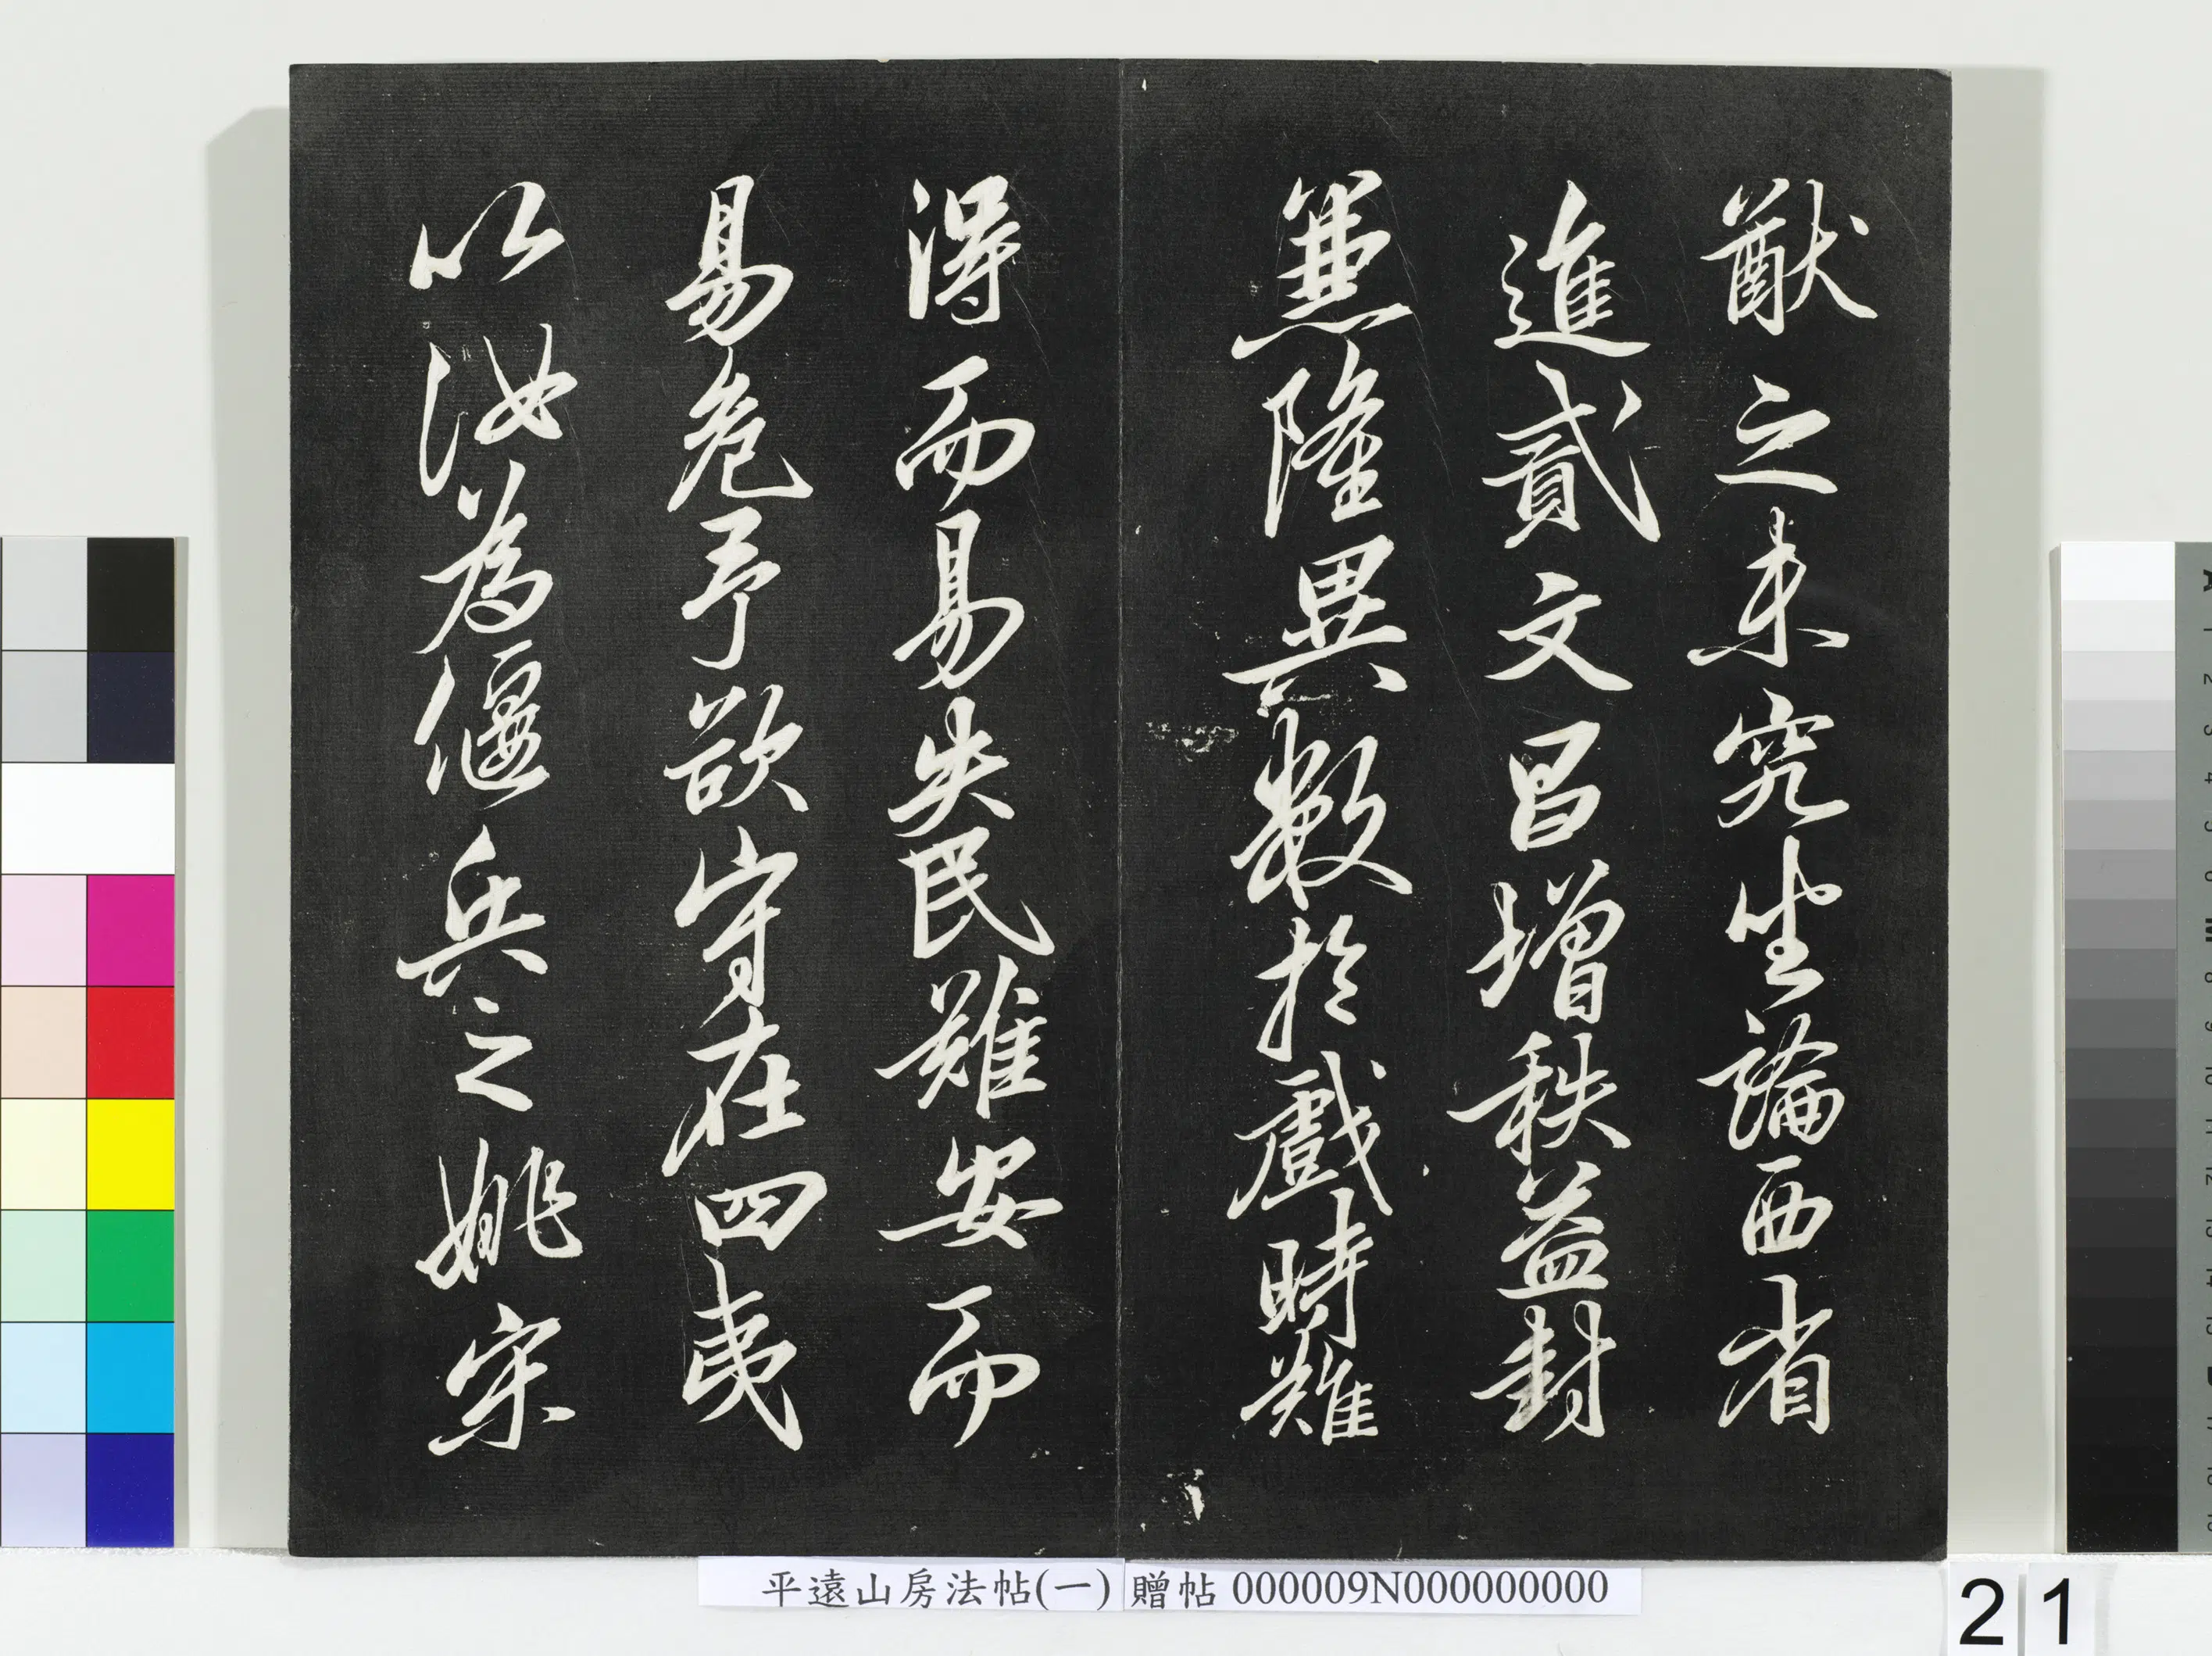 猷之未究坐論西省
進貳文昌增秩益封
蒐隆異數於戲時難
得而易失民難安而
易危予欲守在四夷
以汝為偃兵之姚宋
平遠山房法帖(一) 贈帖 000009N000000000
21